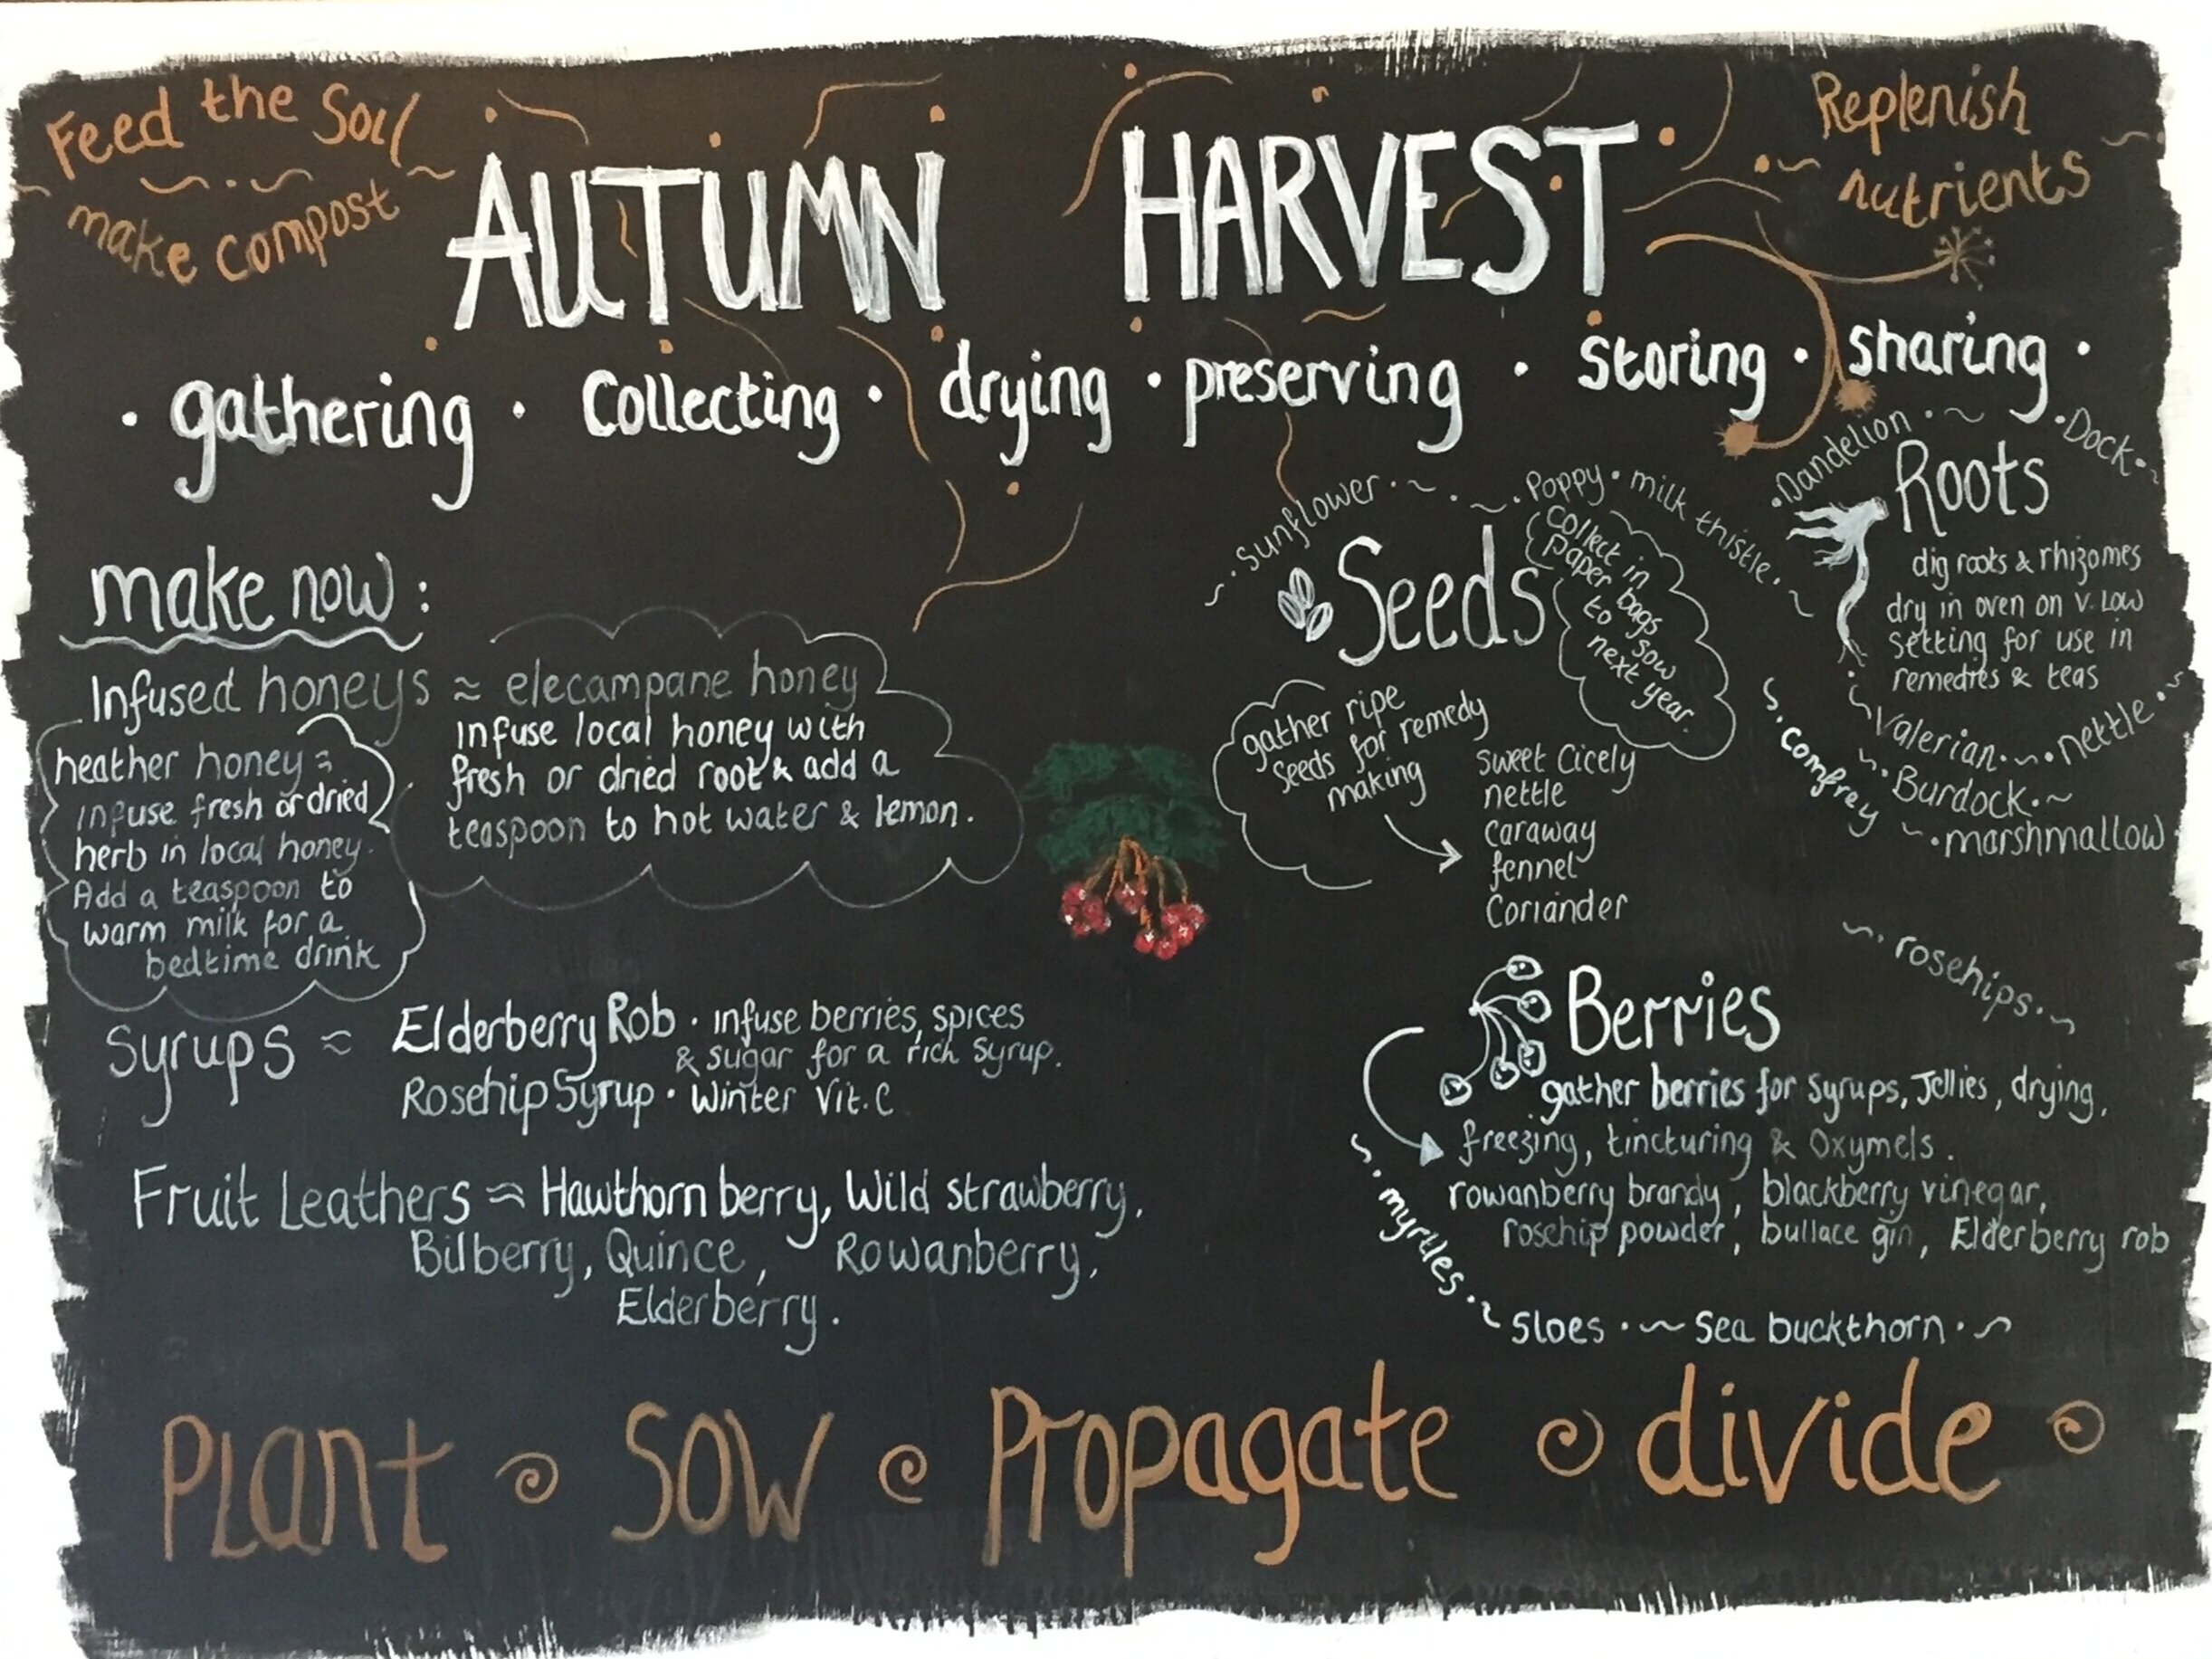 Feed the Soil
make compost
AUTUMN HARVEST
Replenish
nutrients
· gathering · Collecting · drying · preserving · storing · sharing ·
make now:
Infused honeys ≈ elecampane honey
infuse local honey with
fresh or dried root & add a
teaspoon to hot water & lemon.
heather honey =
infuse fresh or dried
herb in local honey.
Add a teaspoon to
warm milk for a
bedtime drink
Syrups ≈ Elderberry Rob · infuse berries, spices
& sugar for a rich syrup.
Rosehip Syrup · Winter Vit. C
Fruit Leathers ≈ Hawthorn berry, Wild strawberry,
Bilberry, Quince, Rowanberry,
Elderberry.
· Sunflower · ~ · ~ · Poppy · milk thistle · ~
Seeds
Collect in
paper bags
to sow
next year.
gather ripe
seeds for remedy
making
sweet Cicely
nettle
caraway
fennel
Coriander
· Dandelion · ~ · Dock · ~
Roots
dig roots & rhizomes
dry in oven on v. low
setting for use in
remedies & teas
~ Valerian · ~ · nettle · ~
~ · comfrey
~ · Burdock · ~
~ · marshmallow
~ · rosehips · ~
Berries
gather berries for syrups, Jellies, drying,
freezing, tincturing & Oxymels.
rowanberry brandy, blackberry vinegar,
rosehip powder, bullace gin, Elderberry rob
~ · myrtles · ~ Sloes · ~ Sea buckthorn · ~
Plant SOW Propagate divide